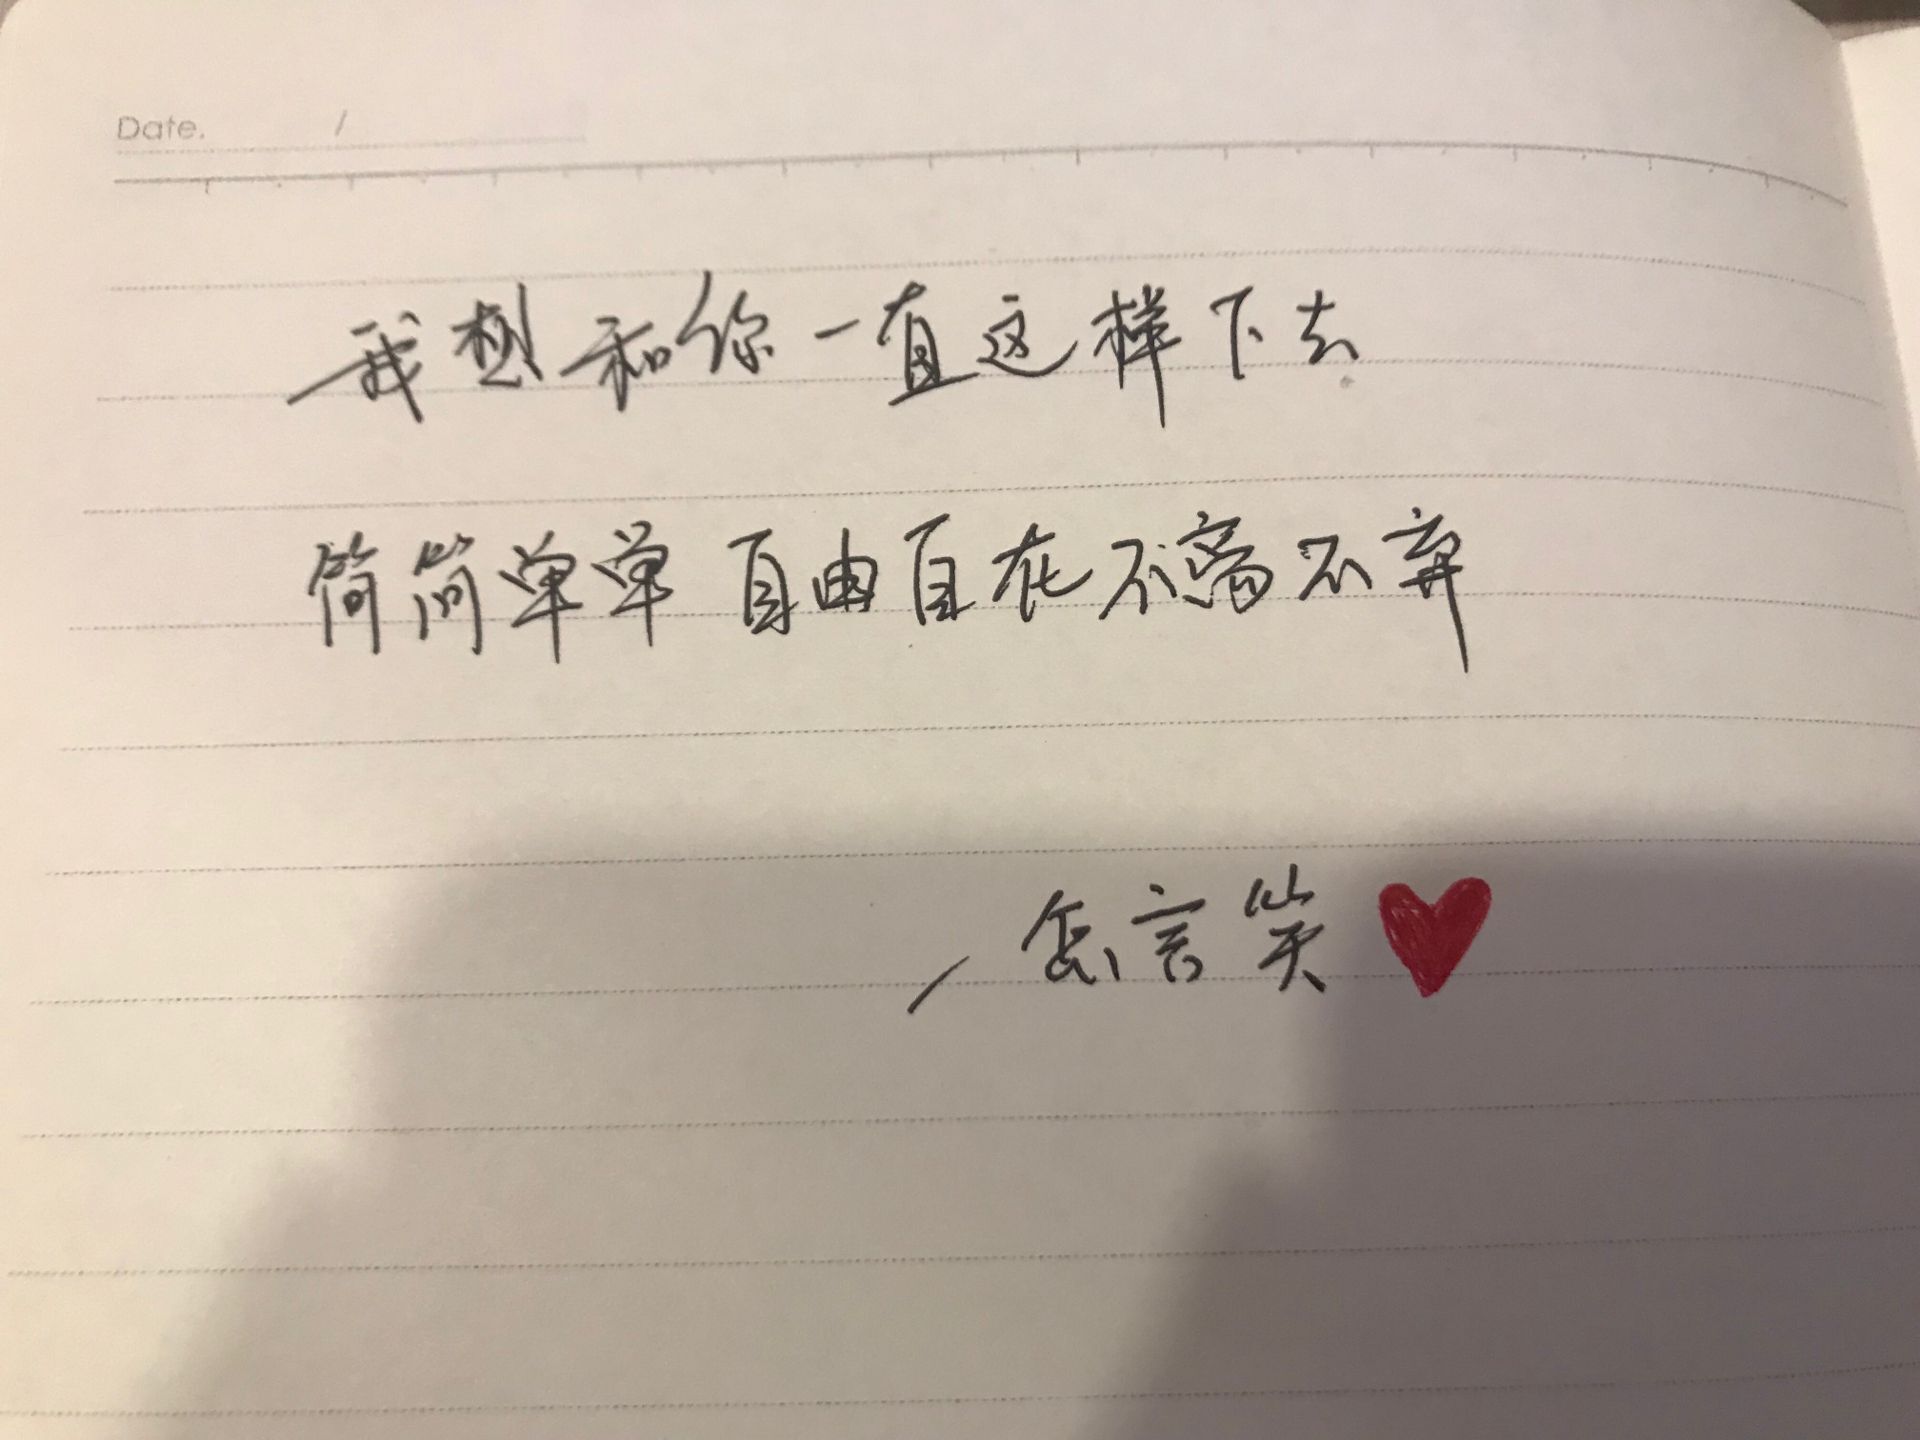 Date. /
我想和你一直这样下去
简简单单 自由自在不离不弃
/ 怎言笑